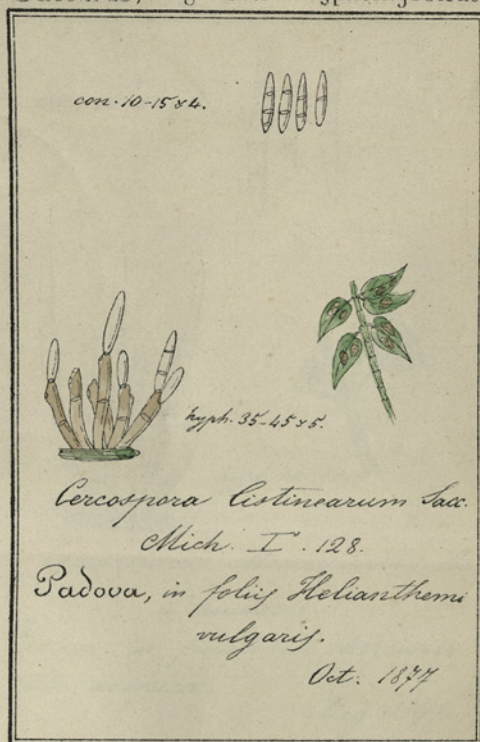 con. 10-15 x 4.
hyph. 35-45 x 5.
Cercospora Cistinearum Sacc.
Mich. I. 128.
Padova, in foliis Helianthemi
vulgaris.
Oct. 1877